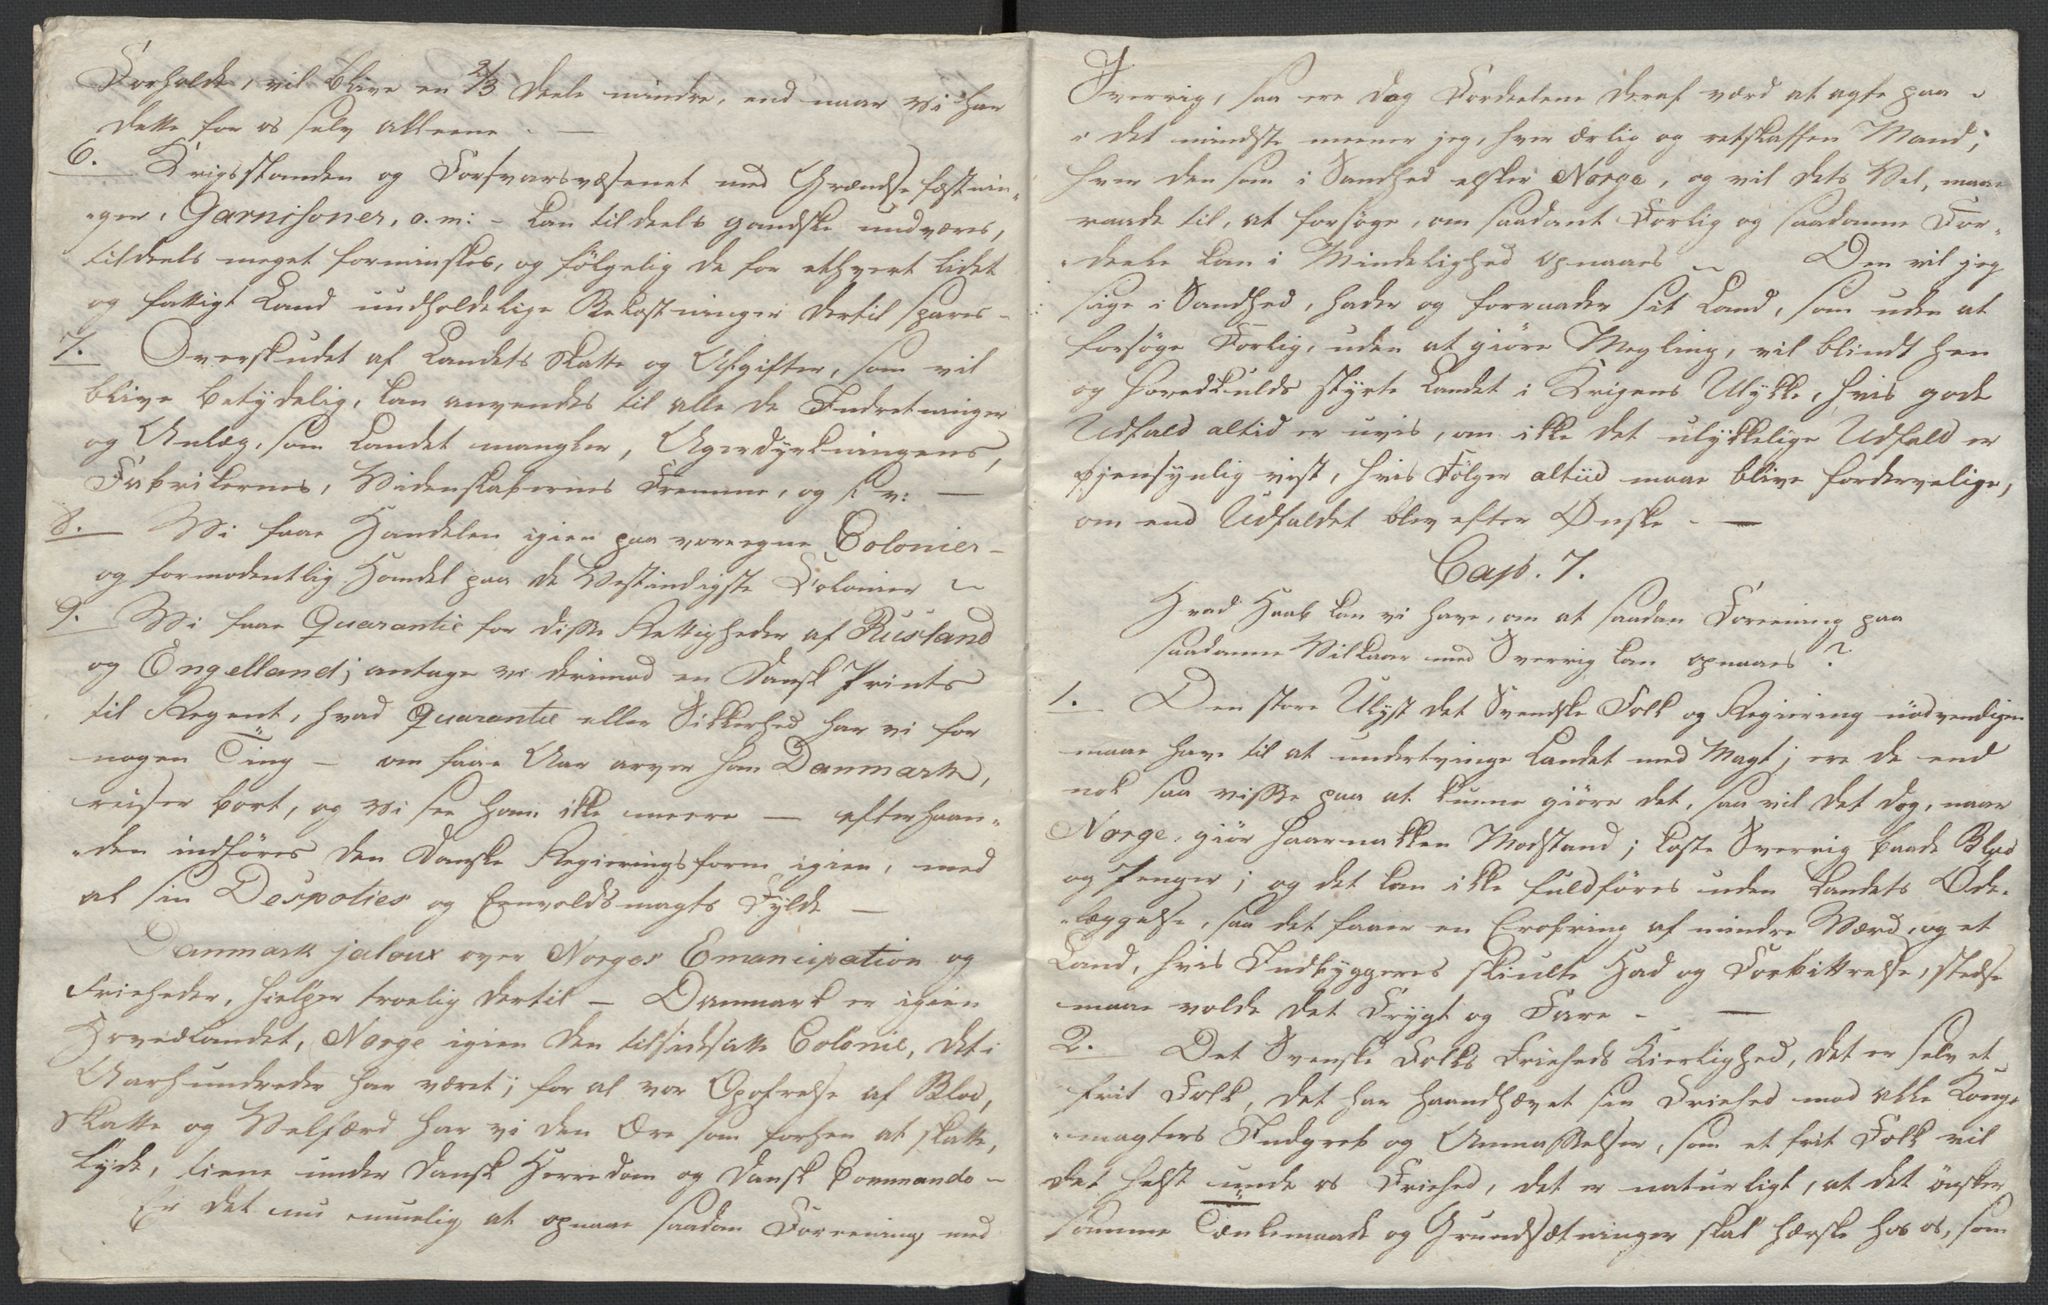 Forholde, vil blive en 2/3 deele mindre, end naar vi har
dette for os selv alleene. —
6. Krigsstanden og Forsvarsvæsenet med Grændsefæstnin„
„ger, Garnisoner, o. m: - kan tildeels gandske undværes,
tildeels meget formindskes, og følgelig de for ethvert lidet
og fattigt Land uudholdelige Bekostninger dertil spares -
7. Overskudet af Landets Skatte og Afgifter, som vil
blive betydelig, kan anvendes til alle de Indretninger
og Anlæg, som Landet mangler, Agerdyrkningens,
Fabrikernes, Videnskabernes Fremme, og s. v: —
8. Vi faae Handelen igien paa vore egne Colonier -
og formodentlig Handel paa de Vestindiske Colonier ~
9. Vi faae Quarantie for disse Rettigheder af Rusland
og Engelland; antage vi derimod en Dansk Prints
til Regent, hvad Quarantie eller Sikkerhed har vi for
nogen Ting — om faae Aar arver han Danmark,
reiser bort, og vi see ham ikke meere — efterhaan„
„den indføres den Danske Regieringsform igien, med
al sin Despoties og Eenvoldsmagts Fylde —
Danmark jaloux over Norges Emancipation og
Frieheder, hielper troelig dertil — Danmark er igien
Hovedlandet, Norge igien den tilsidsatte Colonie, det i
Aarhundreder har været; for al vor Opofrelse af Blod,
Skatte og Velfærd har vi den Ære som forhen at skatte,
lyde, tiene under Dansk Herredom og Dansk Commando —
Er det nu muelig at opnaae saadan Foreening med
Sverrig, saa ere dog Fordeelene deraf værd at agte paa ~
i det mindste meener jeg, hver ærlig og retskaffen Mand;
hver den som i Sandhed elsker Norge, og vil dets Vel, maae
raade til, at forsøge, om saadant Forlig og saadanne For„
„deele kan i Mindelighed opnaaes ~ Den vil jeg
sige i Sandhed, hader og forraader sit Land, som uden at
forsøge Forlig, uden at giøre Megling, vil blindt hen
og hovedkulds styrte Landet i Krigens Ulykke, hvis gode
Udfald altid er uvis, om ikke det ulykkelige Udfald er
øjensynlig vist, hvis Følger altiid maae blive fordervelige,
om end Udfaldet blev efter Ønske - —
Cap. 7.
Hvad Haab kan vi have, om at saadan Foreening paa
saadanne Vilkaar med Sverrig kan opnaaes?
1. Den store Ulyst det Svenske Folk og Regiering nødvendigen
maae have til at undertvinge Landet med Magt; ere de end
nok saa visse paa at kunne giøre det, saa vil det dog, naar
Norge giør haarnakken Modstand; koste Sverrig baade Blod
og Penger; og det kan ikke fuldføres uden Landets Øde„
„læggelse, saa det faaer en Erobring af mindre Værd, og et
Land, hvis Indbyggeres skiulte Had og Forbittrelse, stedse
maae volde det Frygt og Fare - —
2. Det Svenske Folks Frieheds Kierlighed, det er selv et
frit Folk, det har haandhævet sin Friehed mod alle Konge
„magters Indgreb og Anmasselser, som et frit Folk vil
det helst unde os Friehed, det er naturligt, at det ønsker
samme Tænkemaade og Grundsætninger skal herske hos os, som